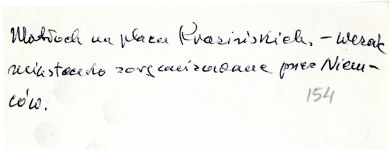 Motłoch na placu Krasińskich, – wesołe
miasteczko zorganizowane przez Niem-
ców.
154